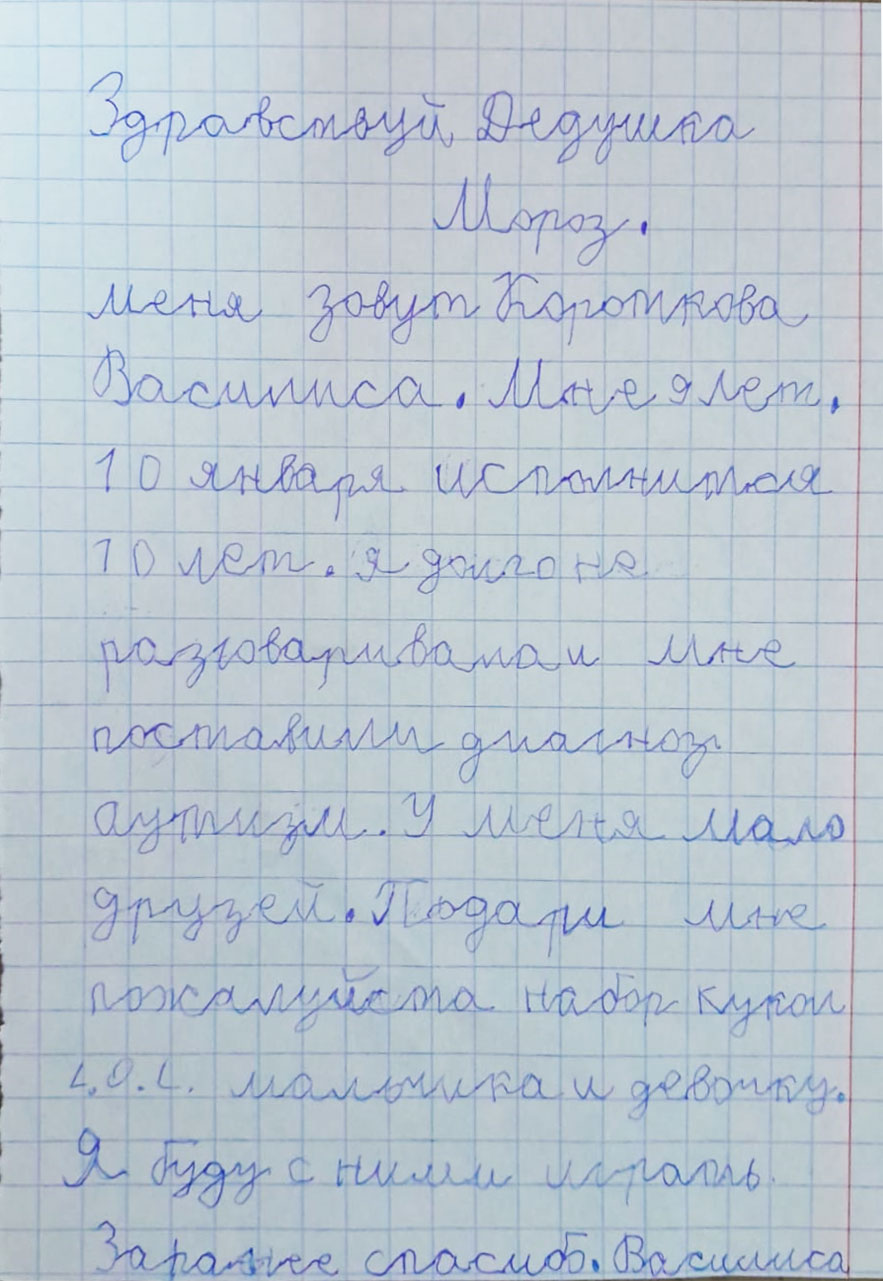 Здравствуй Дедушка
Мороз.
меня зовут Короткова
Василиса. Мне 9 лет.
10 января исполнится
10 лет. я долго не
разговаривала и мне
поставили диагноз
аутизм. У меня мало
друзей. Подари мне
пожалуйста набор кукол
L.O.L. мальчика и девочку.
Я буду с ними играть.
Заранее спасиб. Василиса